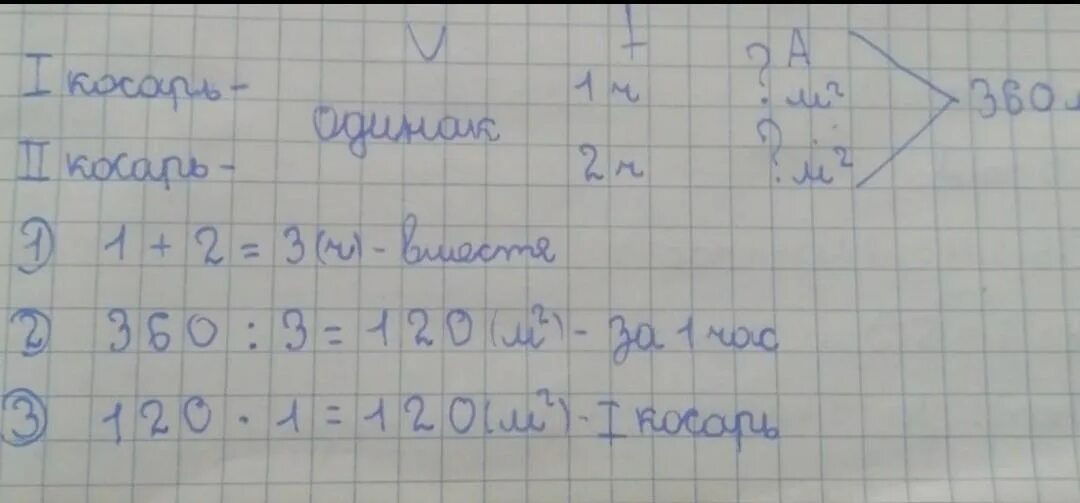 V t A
I косарь - 1 ч ? м² 360 м
одинак
II косарь - 2 ч ? м²
1) 1 + 2 = 3 (ч) - вместя
2) 360 : 3 = 120 (м²) - за 1 час
3) 120 · 1 = 120 (м²) - I косарь